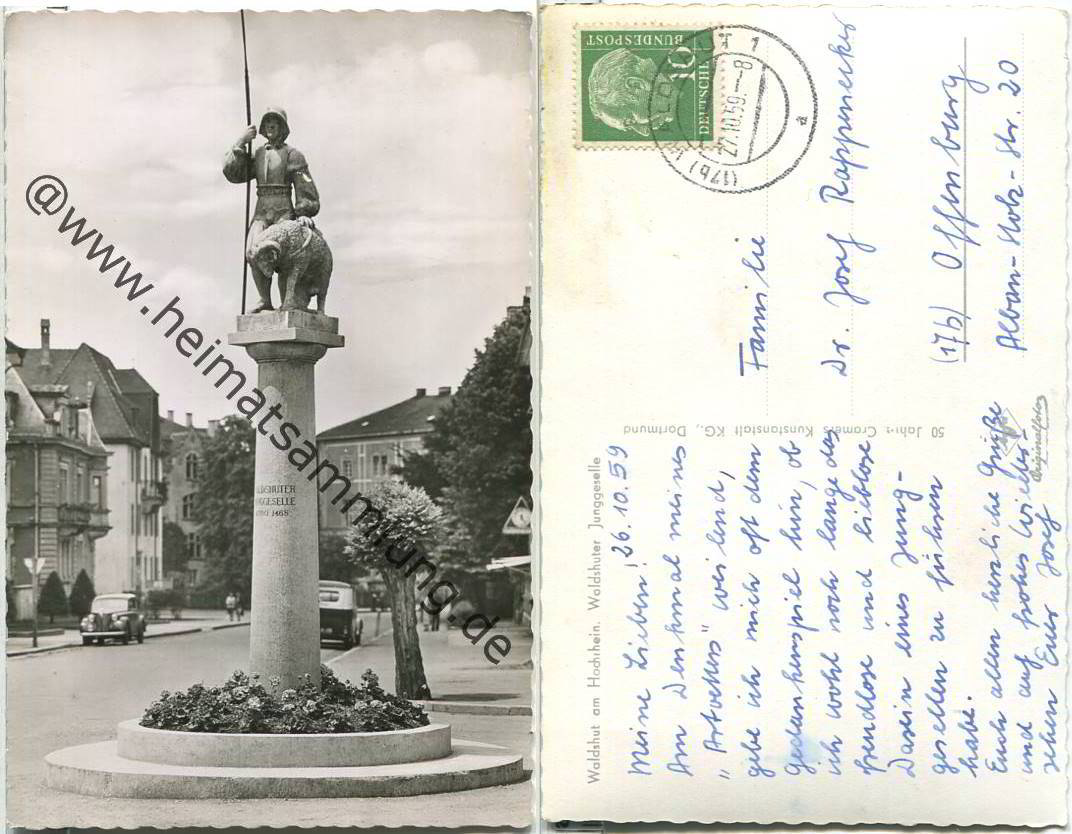 WALDSHUTER
JUNGGESELLE
ANNO 1468
@www.heimatsammlung.de
Waldshut am Hochrhein. Waldshuter Junggeselle
50 Jahre Cramers Kunstanstalt KG., Dortmund
Originalfoto
DEUTSCHE
BUNDESPOST
10
(17b) WALDSHUT 1
27.10.59.-8
a
Meine Lieben! 26.10.59
Am Denkmal meines
weilend,
gebe ich mich oft dem
Gedankenspiel hin, ob
ich wohl noch lange das
freudlose und lieblose
Dasein eines Jung-
gesellen zu führen
habe.
Euch allen herzliche Grüße
und auf frohes Wieder-
sehen Euer Josef
Familie
Dr. Josef Rappenecker
(17b) Offenburg
Alban-Stolz-Str. 20